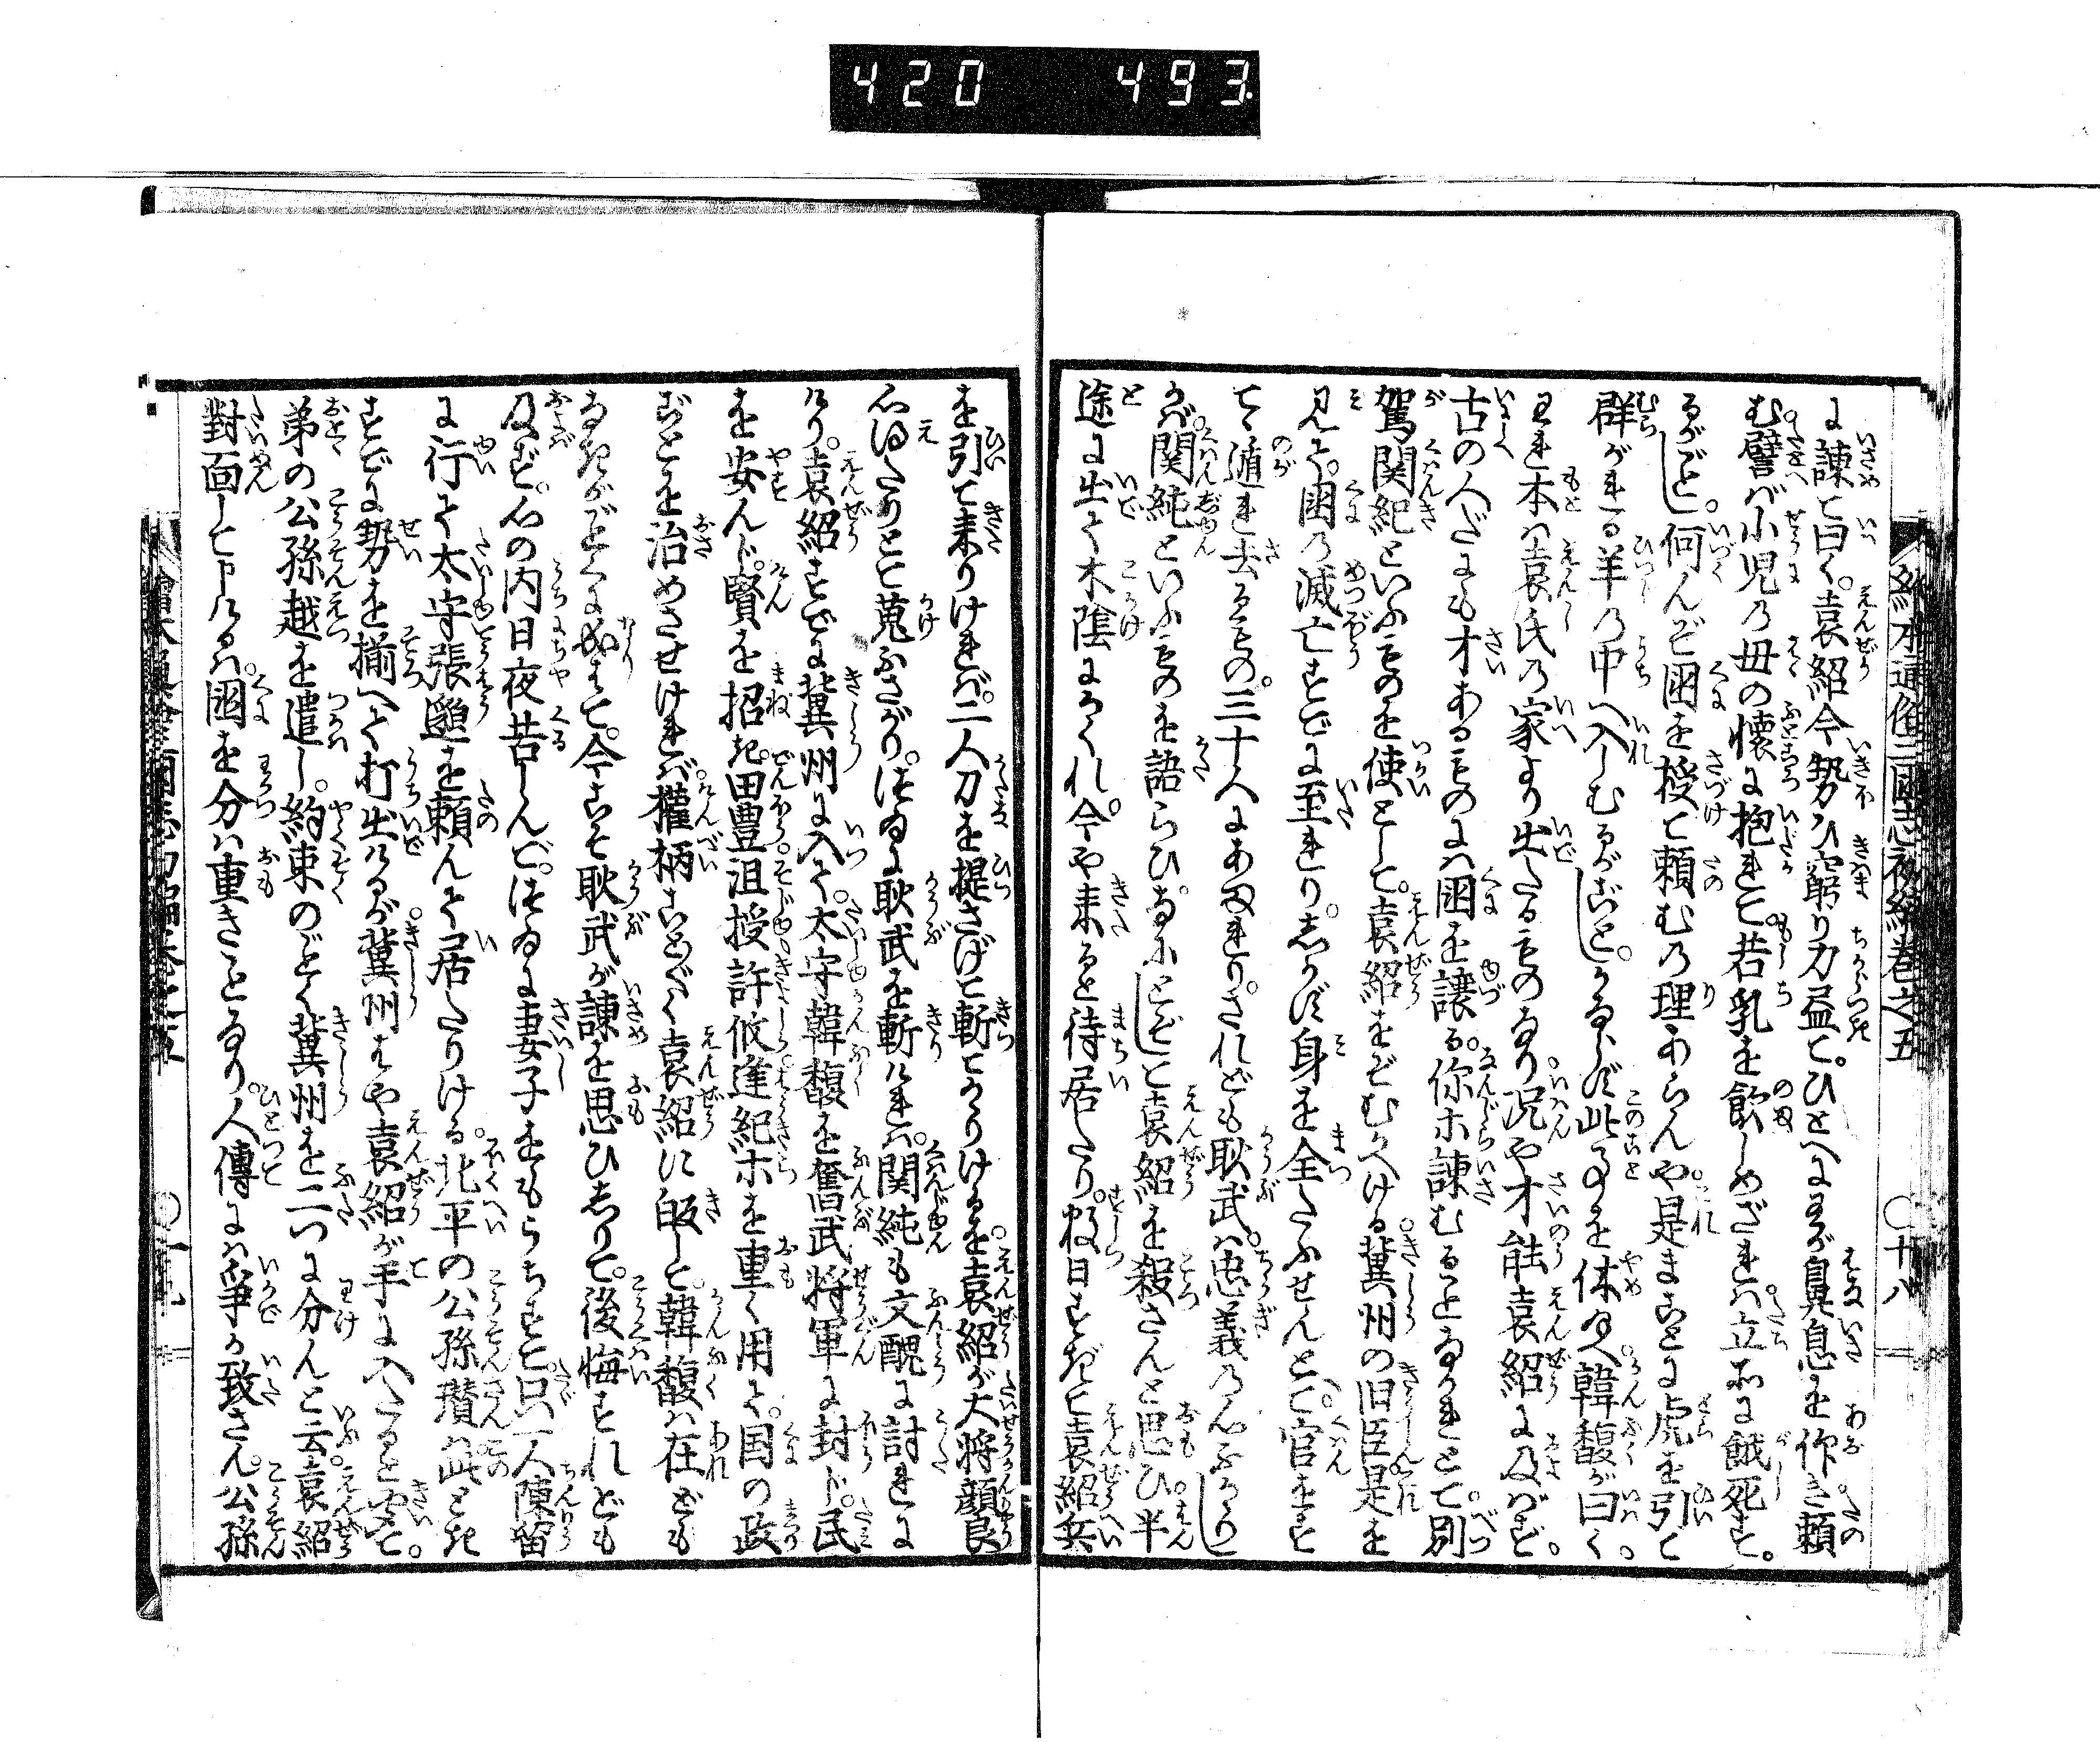 420 493
繪本通俗三國志初編巻之五 〇十八
に諫て曰く。袁紹今勢ひ窮り力尽て。ひとへに我が鼻息を仰ぎ頼
む譬ば小児の母の懐に抱れて。若乳を飲しめざれは。立所に餓死す。
るがごとし。何んぞ国を授て頼むの理あらんや。是まことに虎を引て
群がれる羊の中へ入しむるがごとし。かならず此事を休玉へ。韓馥が曰く。
われ本は袁氏の家より出たるものなり。況や才能袁紹に及ばず。
古の人だにも才あるものには国を譲る。你等諫むることなかれとて。別
駕関紀といふものを使として。袁紹をぞむかへける。冀州の旧臣是を
見て。国の滅亡すでに至れり。しかず身を全ふせんとて。官をす
てゝ遁れ去るもの。三十人にあまれり。されども耿武は。忠義の心ふかく
かば。関純といふものを語らひ。なにとぞして袁紹を殺さんと思ひ。半
途に出て木陰にかくれ。今や来ると待居たり。数日すぎて袁紹兵
を引て来りければ。二人刀を提さげて斬てかゝりけるを。袁紹が大将顔良
心得たりとて蒐ふさがり。つゐに耿武を斬ければ。関純も文醜に討れに
けり。袁紹すでに冀州に入て。太守韓馥を奮武将軍に封じ。民
を安んじ。賢を招き。田豊。沮授。許攸。逢紀等を重く用て。国の政
ごとを治めさせければ。権柄ことごとく袁紹に皈して。韓馥は在ども
なきがごとくに成て。今こそ耿武が諫を思ひしりて。後悔すれども
及ばず。心の内日夜苦しんで。つゐに妻子をもうちすて。只一人陳留
に行て太守張邈を頼んで居たりける。北平の公孫瓚は。此とき
すでに勢を揃へて打出けるが。冀州はや袁紹が手に入たると聞て。
弟の公孫越を遣し。約束のごとく冀州を二つに分んと云。袁紹
對面して申けるは。国を分は重きことなり。人傳には争か致さん。公孫